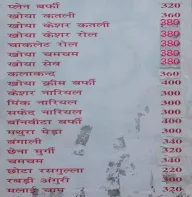 प्लेन बर्फी 320
खोया कतली 360
खोया केशर कतली 380
खोया केशर रोल 380
चाकलेट रोल 380
खोया चमचम 380
खोया सेव 380
कलाकन्द 360
खोया क्रीम बर्फी 400
केशर नारियल 300
पिंक नारियल 300
सफेद नारियल 300
बॉनबीटा बर्फी 400
मथुरा पेड़ा 300
बंगाली 340
छेना मुर्गी 320
चमचम 340
छोटा रसगुल्ला 220
रबड़ी अंगुरी 300
मलाई चाप 320